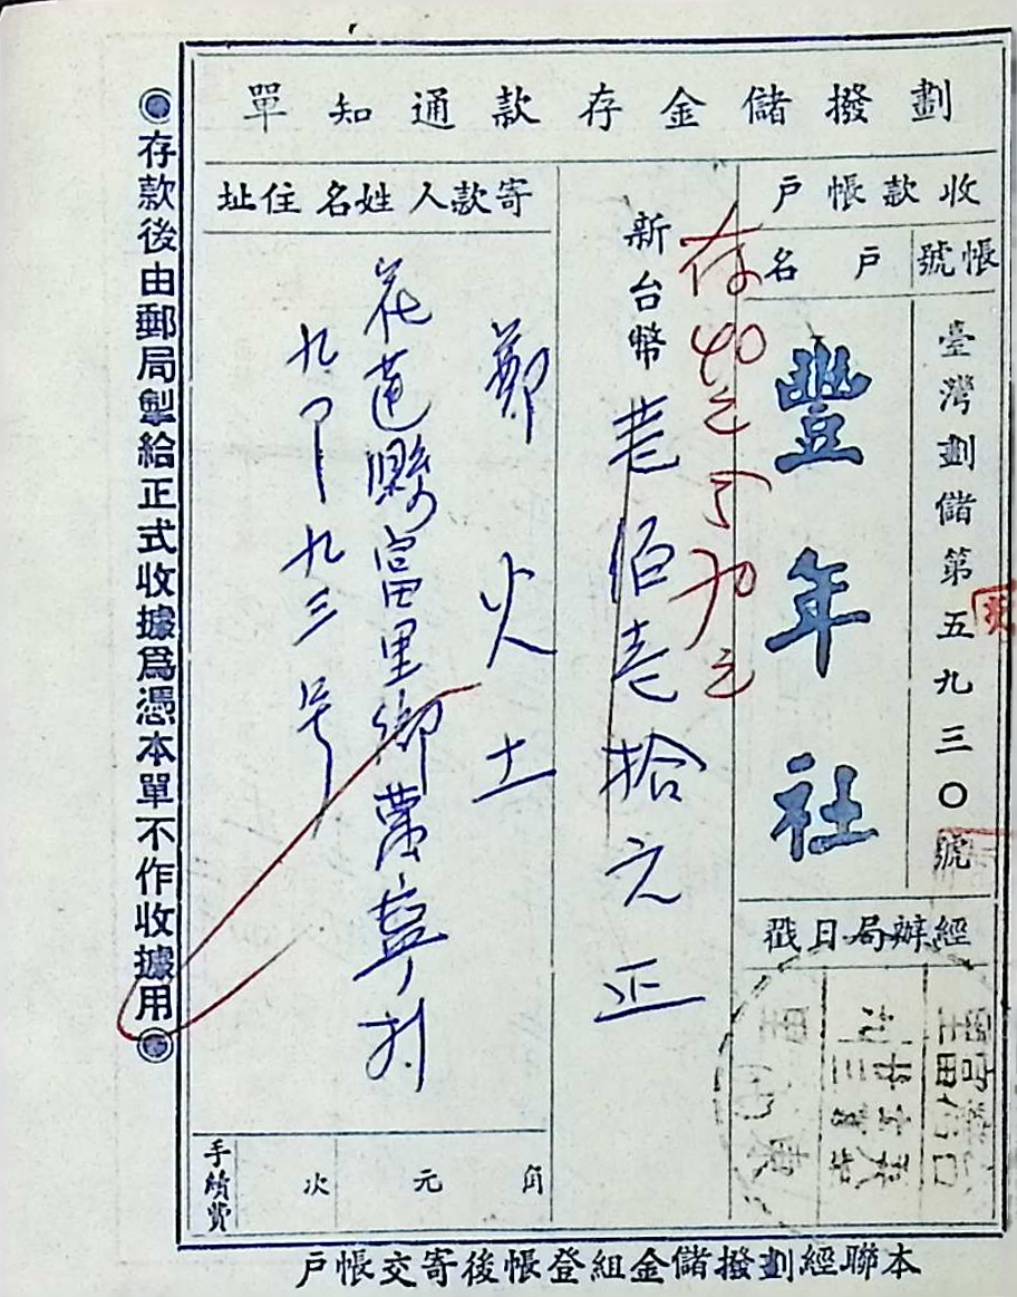 劃撥儲金存款通知單
收款帳戶
帳號
戶名
臺灣劃儲第五九三〇號
豐年社
新台幣壱佰壱拾元正
存40元
寄款人姓名住址
鄭火土
花蓮縣富里鄉萬寧村
九鄰九三号
經辦局日戳
手續費
次
元
角
◉存款後由郵局掣給正式收據為憑本單不作收據用◉
本聯經劃撥儲金組登帳後寄交帳戶